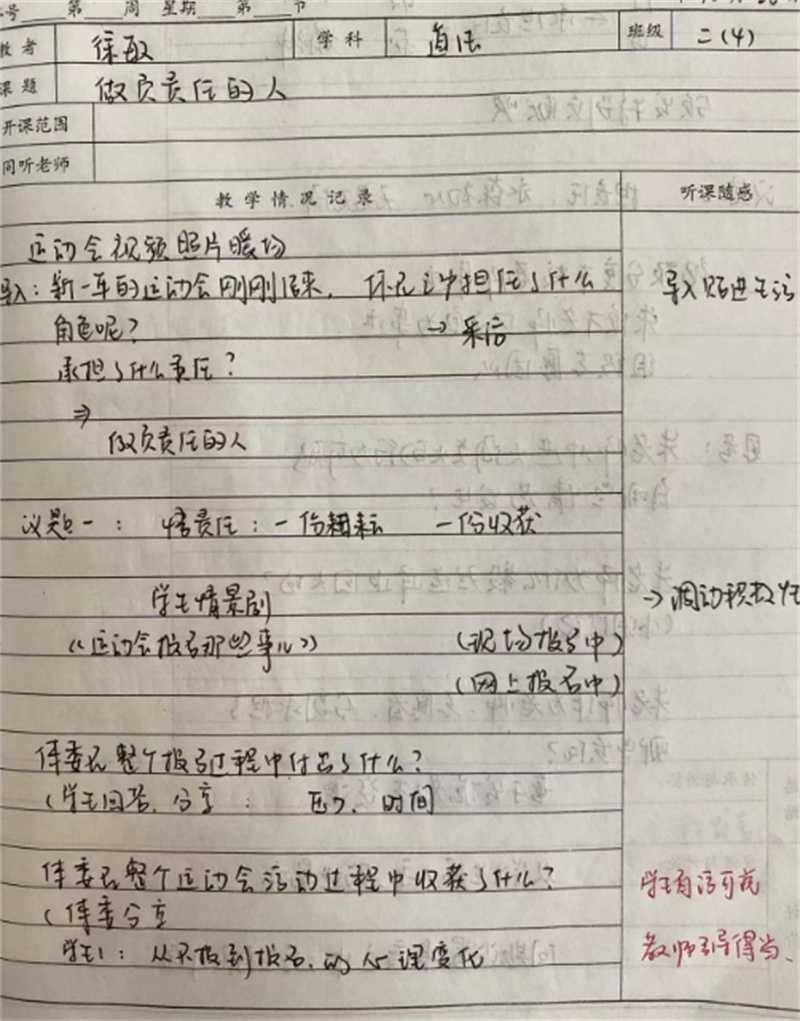 号 第 周 星期 第 节
教者 徐敏 学科 道法 班级 二(4)
课题 做负责任的人
开课范围
同听老师
教学情况记录 听课随感
运动会视频照片暖场
导入：新一年的运动会刚刚结束，你在之中担任了什么 导入贴近生活
角色呢？ → 采访
承担了什么责任？
⇒
做负责任的人
议题一： 悟责任：一份耕耘 一份收获
学生情景剧 → 调动积极性
《运动会报名那些事儿》 (现场报名中)
(网上报名中)
体委在整个报名过程中付出了什么？
(学生回答、分享： 时间
体委在整个运动会活动过程中收获了什么？ 学生有话可说
(体委分享
学生1：从不报到报名，的心理变化 教师引导得当、